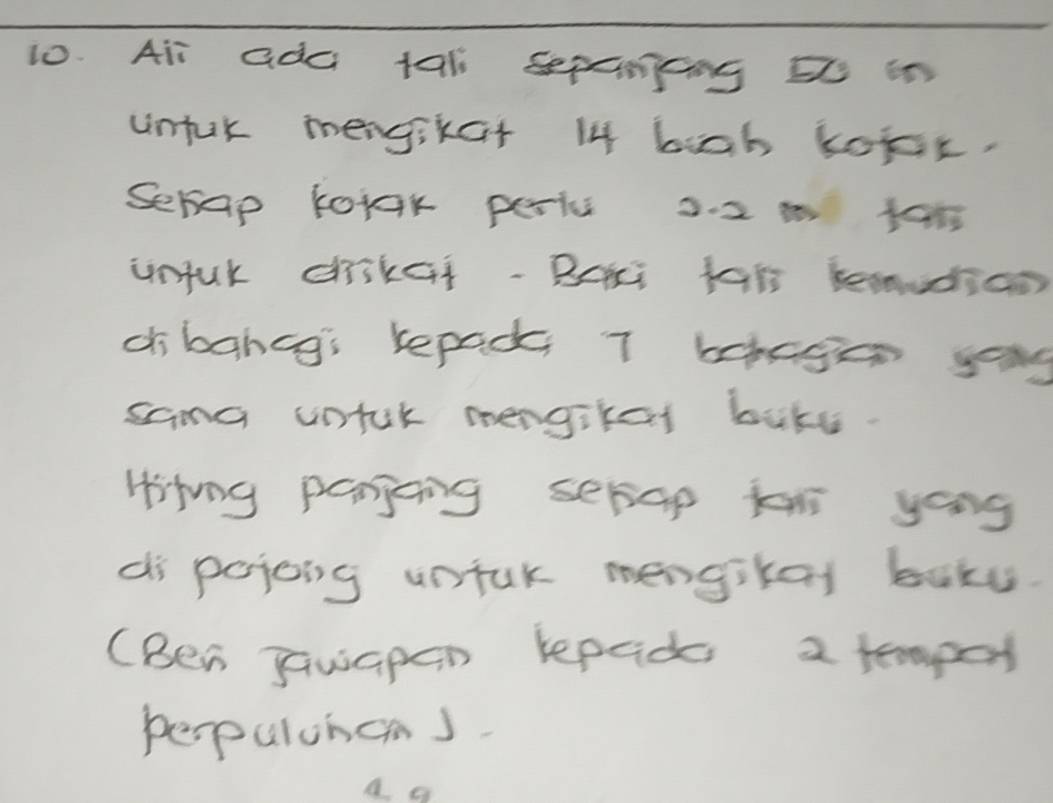 10. Ali ada tali sepanjang 50 m
untuk mengikat 14 buah kotak.
Setiap kotak perlu 2.2 m tali
untuk diikat. Baki tali kemudian
dibahagi kepada 7 bahagian yang
sama untuk mengikat buku.
Hitung panjang setiap tali yang
di potong untuk mengikat buku.
(Beri jawapan kepada 2 tempat
perpuluhan).